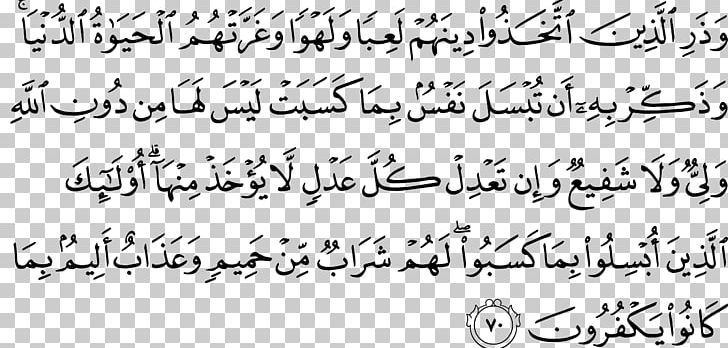 وَذَرِ ٱلَّذِينَ ٱتَّخَذُوا۟ دِينَهُمْ لَعِبًا وَلَهْوًا وَغَرَّتْهُمُ ٱلْحَيَوٰةُ ٱلدُّنْيَا ۚ
وَذَكِّرْ بِهِۦٓ أَن تُبْسَلَ نَفْسٌۢ بِمَا كَسَبَتْ لَيْسَ لَهَا مِن دُونِ ٱللَّهِ
وَلِىٌّ وَلَا شَفِيعٌ وَإِن تَعْدِلْ كُلَّ عَدْلٍ لَّا يُؤْخَذْ مِنْهَآ ۗ أُو۟لَـٰٓئِكَ
ٱلَّذِينَ أُبْسِلُوا۟ بِمَا كَسَبُوا۟ ۖ لَهُمْ شَرَابٌ مِّنْ حَمِيمٍ وَعَذَابٌ أَلِيمٌۢ بِمَا
كَانُوا۟ يَكْفُرُونَ ٧٠